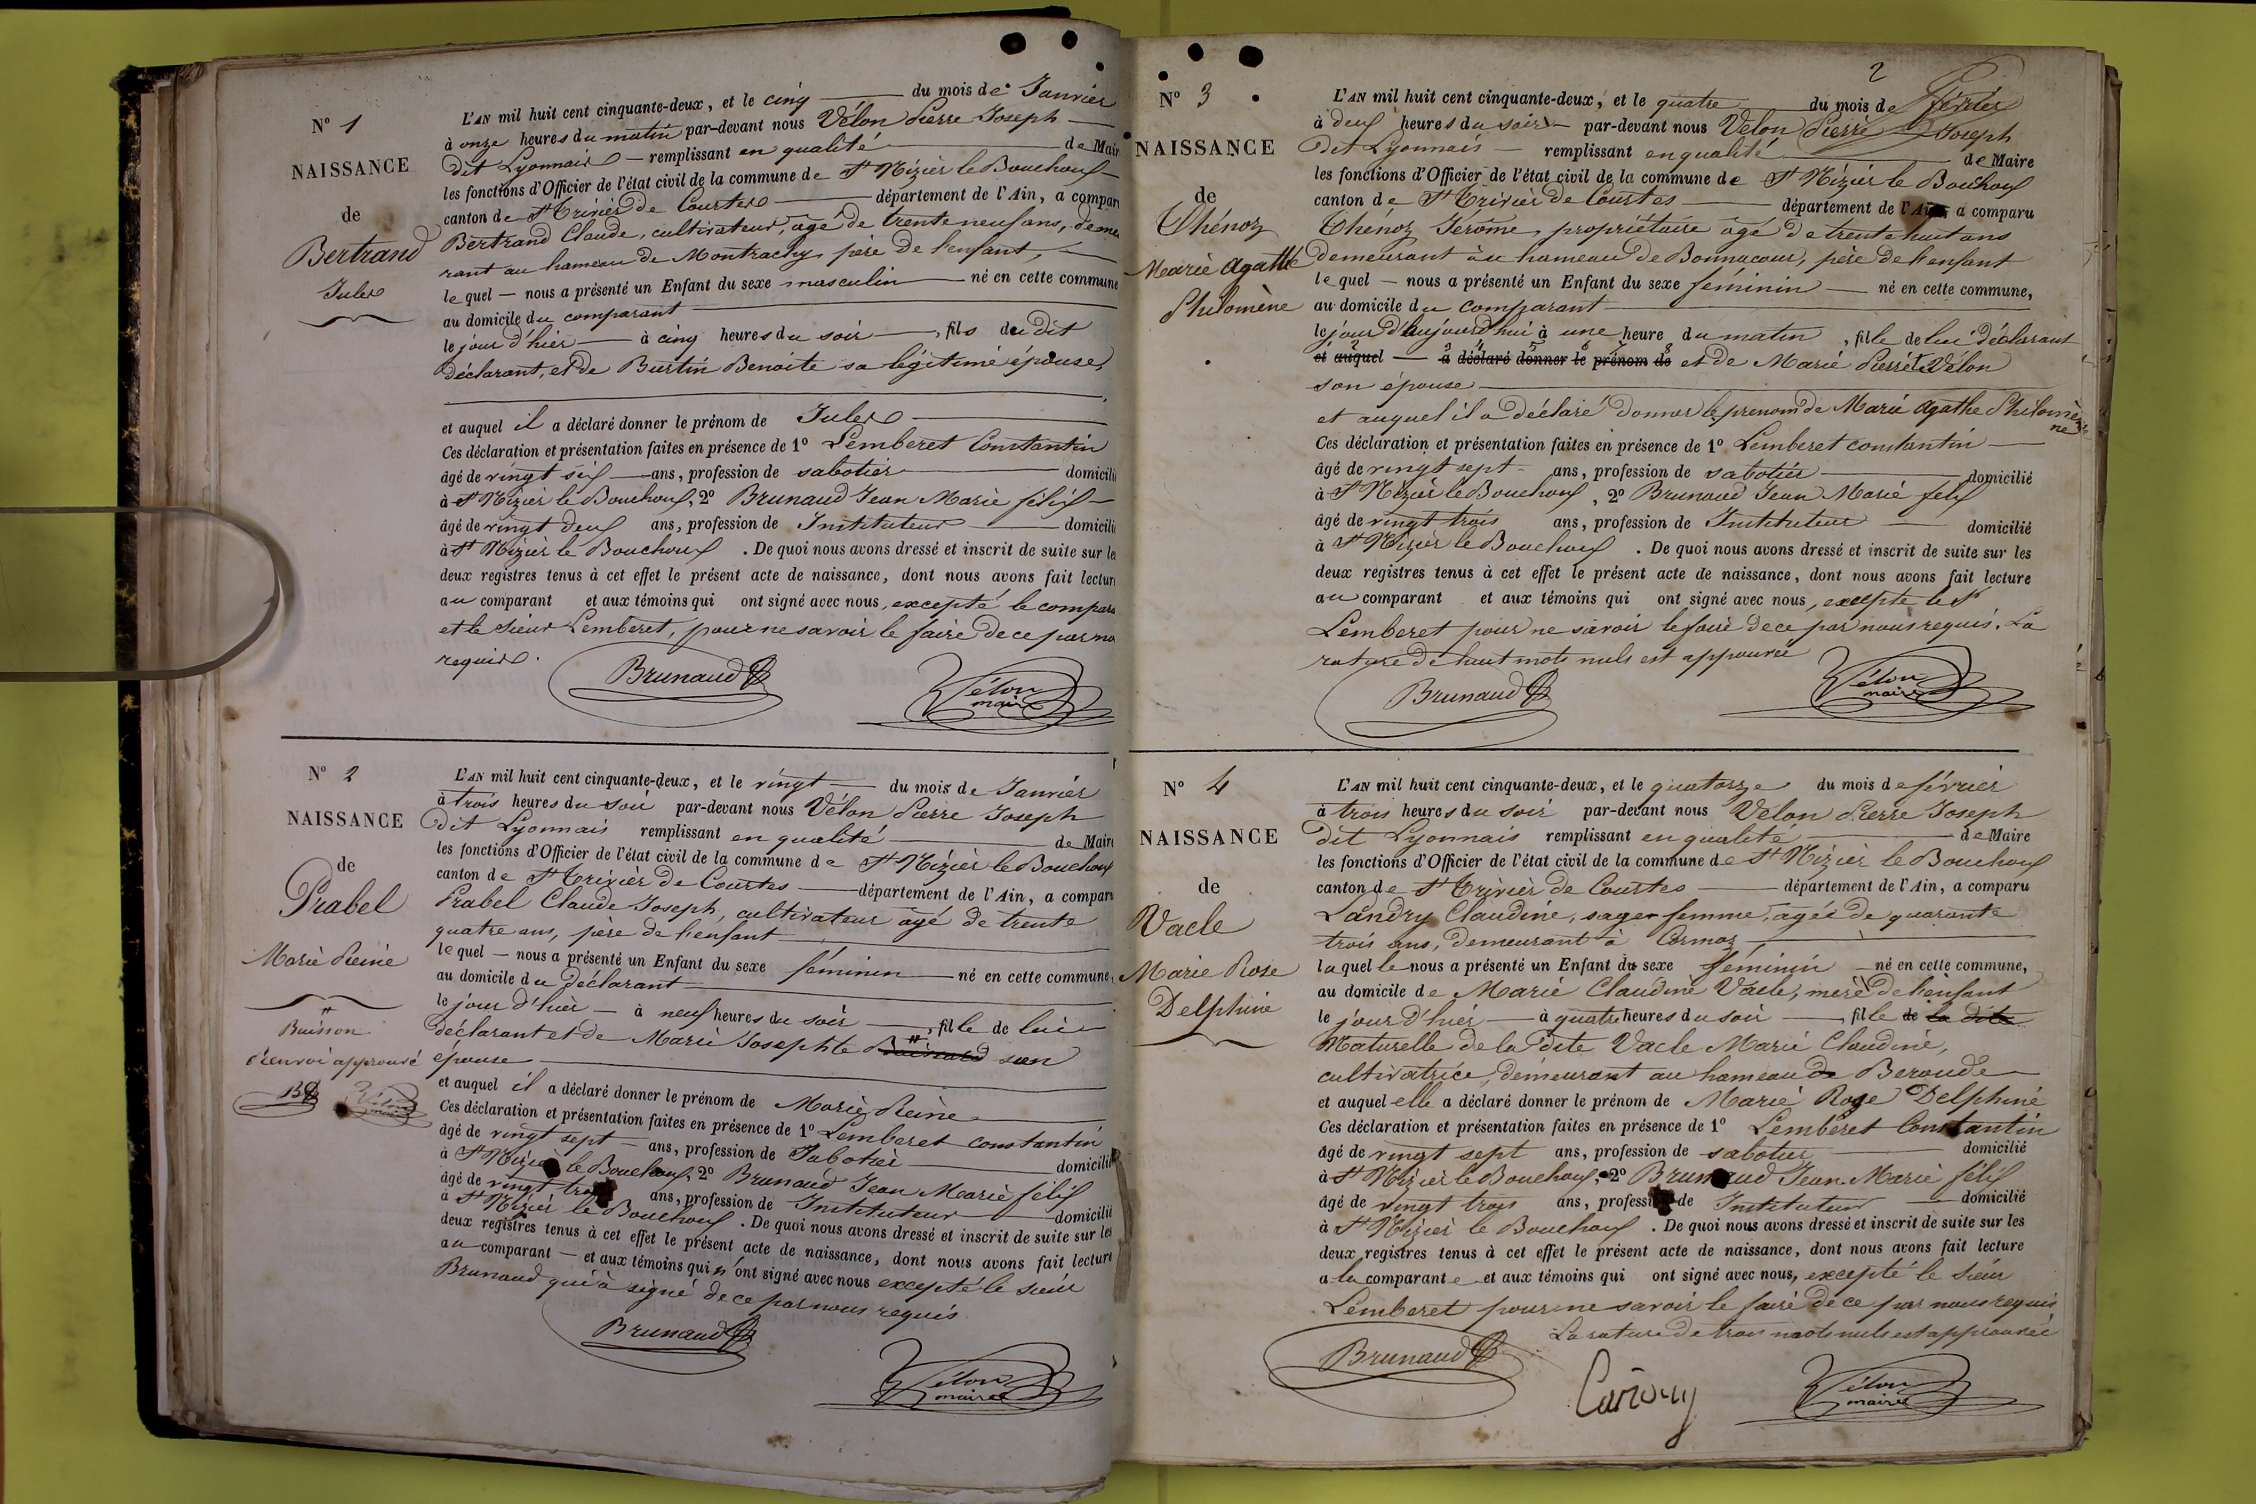 N° 1
NAISSANCE
de
Bertrand
Jules
L'AN mil huit cent cinquante-deux, et le cinq du mois de Janvier
à onze heures du matin par-devant nous Vélon Pierre Joseph
dit Lyonnais remplissant en qualité de Mair
les fonctions d'Officier de l'état civil de la commune de St Nizier le Bouchoux
canton de St Trivier de Courtes département de l'Ain, a compar
Bertrand Claude, cultivateur, âgé de trente neuf ans, demeu
rant au hameau de Montrachy père de l'enfant,
lequel nous a présenté un Enfant du sexe masculin né en cette commune
au domicile du comparant
le jour d'hier à cinq heures du soir, fils du dit
déclarant, et de Burtin Benoite sa légitime épouse,
et auquel il a déclaré donner le prénom de Jules
Ces déclaration et présentation faites en présence de 1° Lemberet Constantin
âgé de vingt six ans, profession de sabotier domicili
à St Nizier le Bouchoux, 2° Brunaud Jean Marie félix
âgé de vingt deux ans, profession de Instituteur domicili
à St Nizier le Bouchoux. De quoi nous avons dressé et inscrit de suite sur le
deux registres tenus à cet effet le présent acte de naissance, dont nous avons fait lectur
au comparant et aux témoins qui ont signé avec nous, excepté le compara
et le sieur Lemberet, pour ne savoir le faire de ce par no
requis.
Brunaud
Vélon
maire
N° 2
NAISSANCE
de
Prabel
Marie Reine
Buisson
renvoi approuvé
B
Vélon
maire
L'AN mil huit cent cinquante-deux, et le vingt du mois de Janvier
à trois heures du soir par-devant nous Vélon Pierre Joseph
dit Lyonnais remplissant en qualité de Mair
les fonctions d'Officier de l'état civil de la commune de St Nizier le Bouchoux
canton de St Trivier de Courtes département de l'Ain, a comparu
Prabel Claude Joseph, cultivateur âgé de trente
quatre ans, père de l'enfant
lequel nous a présenté un Enfant du sexe féminin né en cette commune,
au domicile du déclarant
le jour d'hier à neuf heures du soir, fille de lui
déclarant et de Marie Josephte son
épouse
et auquel il a déclaré donner le prénom de Marie Reine
Ces déclaration et présentation faites en présence de 1° Lemberet constantin
âgé de vingt sept ans, profession de Sabotier domicilié
à St Nizier le Bouchoux, 2° Brunaud Jean Marie félix
âgé de vingt trois ans, profession de Instituteur domicilié
à St Nizier le Bouchoux. De quoi nous avons dressé et inscrit de suite sur les
deux registres tenus à cet effet le présent acte de naissance, dont nous avons fait lecture
au comparant et aux témoins qui n'ont signé avec nous excepté le sieur
Brunaud qui a signé de ce par nous requis
Brunaud
Vélon
maire
2
N° 3
NAISSANCE
de
Thénoz
Marie Agathe
Philomène
L'AN mil huit cent cinquante-deux, et le quatre du mois de février
à deux heures du soir par-devant nous Vélon Pierre Joseph
dit Lyonnais remplissant en qualité de Maire
les fonctions d'Officier de l'état civil de la commune de St Nizier le Bouchoux
canton de St Trivier de Courtes département de l'Ain, a comparu
Thénoz Jérôme, propriétaire âgé de trente huit ans
demeurant au hameau de Bonnacour, père de l'enfant
lequel nous a présenté un Enfant du sexe féminin né en cette commune,
au domicile du comparant
le jour d'aujourd'hui à une heure du matin, fille de lui déclarant
et auquel a déclaré donner le prénom de et de Marie Pierrette Vélon
son épouse
et auquel il a déclaré donner le prénom de Marie Agathe Philomè
ne
Ces déclaration et présentation faites en présence de 1° Lemberet constantin
âgé de vingt sept ans, profession de sabotier domicilié
à St Nizier le Bouchoux, 2° Brunaud Jean Marie félix
âgé de vingt trois ans, profession de Instituteur domicilié
à St Nizier le Bouchoux. De quoi nous avons dressé et inscrit de suite sur les
deux registres tenus à cet effet le présent acte de naissance, dont nous avons fait lecture
au comparant et aux témoins qui ont signé avec nous, excepté le Sr
Lemberet pour ne savoir le faire de ce par nous requis. La
rature de huit mots nuls est approuvée
Brunaud
Vélon
maire
N° 4
NAISSANCE
de
Vacle
Marie Rose
Delphine
L'AN mil huit cent cinquante-deux, et le quatorze du mois de février
à trois heures du soir par-devant nous Vélon Pierre Joseph
dit Lyonnais remplissant en qualité de Maire
les fonctions d'Officier de l'état civil de la commune de St Nizier le Bouchoux
canton de St Trivier de Courtes département de l'Ain, a comparu
Landry Claudine, sage-femme, agée de quarante
trois ans, demeurant à Cormoz,
laquelle nous a présenté un Enfant du sexe féminin né en cette commune,
au domicile de Marie Claudine Vacle, mère de l'enfant
le jour d'hier à quatre heures du soir, fille de la dite
Naturelle de la dite Vacle Marie Claudine,
cultivatrice, demeurant au hameau de Beroude
et auquel elle a déclaré donner le prénom de Marie Rose Delphine
Ces déclaration et présentation faites en présence de 1° Lemberet Constantin
âgé de vingt sept ans, profession de sabotier domicilié
à St Nizier le Bouchoux, 2° Brunaud Jean Marie félix
âgé de vingt trois ans, profession de Instituteur domicilié
à St Nizier le Bouchoux. De quoi nous avons dressé et inscrit de suite sur les
deux registres tenus à cet effet le présent acte de naissance, dont nous avons fait lecture
a la comparante et aux témoins qui ont signé avec nous, excepté le sieur
Lemberet pour ne savoir le faire de ce par nous requis
La rature de trois mots nuls est approuvée
Brunaud
Vélon
maire